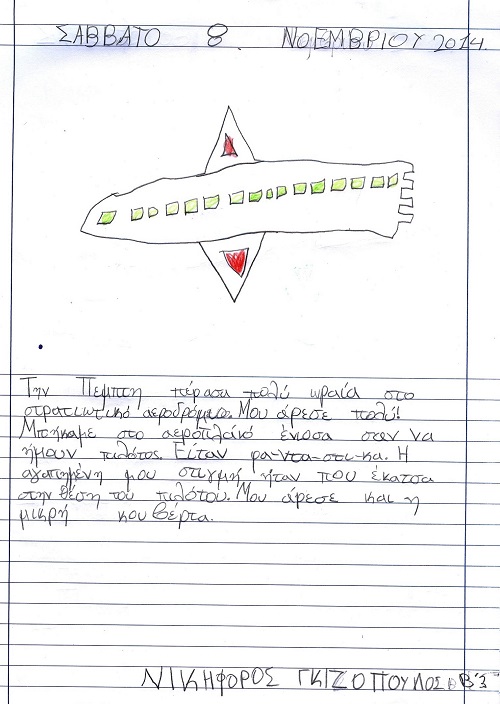 ΣΑΒΒΑΤΟ 8 ΝΟΕΜΒΡΙΟΥ 2014
Την Πεμπτη πέρασα πολύ ωραία στο
στρατιωτικό αεροδρόμιο. Μου άρεσε πολύ!
Μπήκαμε στο αεροπλάκο ένιοσα σαν να
ήμουν πιλότος. Είταν φα-ντα-στι-κα. Η
αγαπημένη μου στιγμή ήταν που έκατσα
στην θέση του πιλότου. Μου άρεσε και η
μικρή κουβέρτα.
ΝΙΚΗΦΟΡΟΣ ΓΚΙΖΟΠΟΥΛΟΣ Β'3